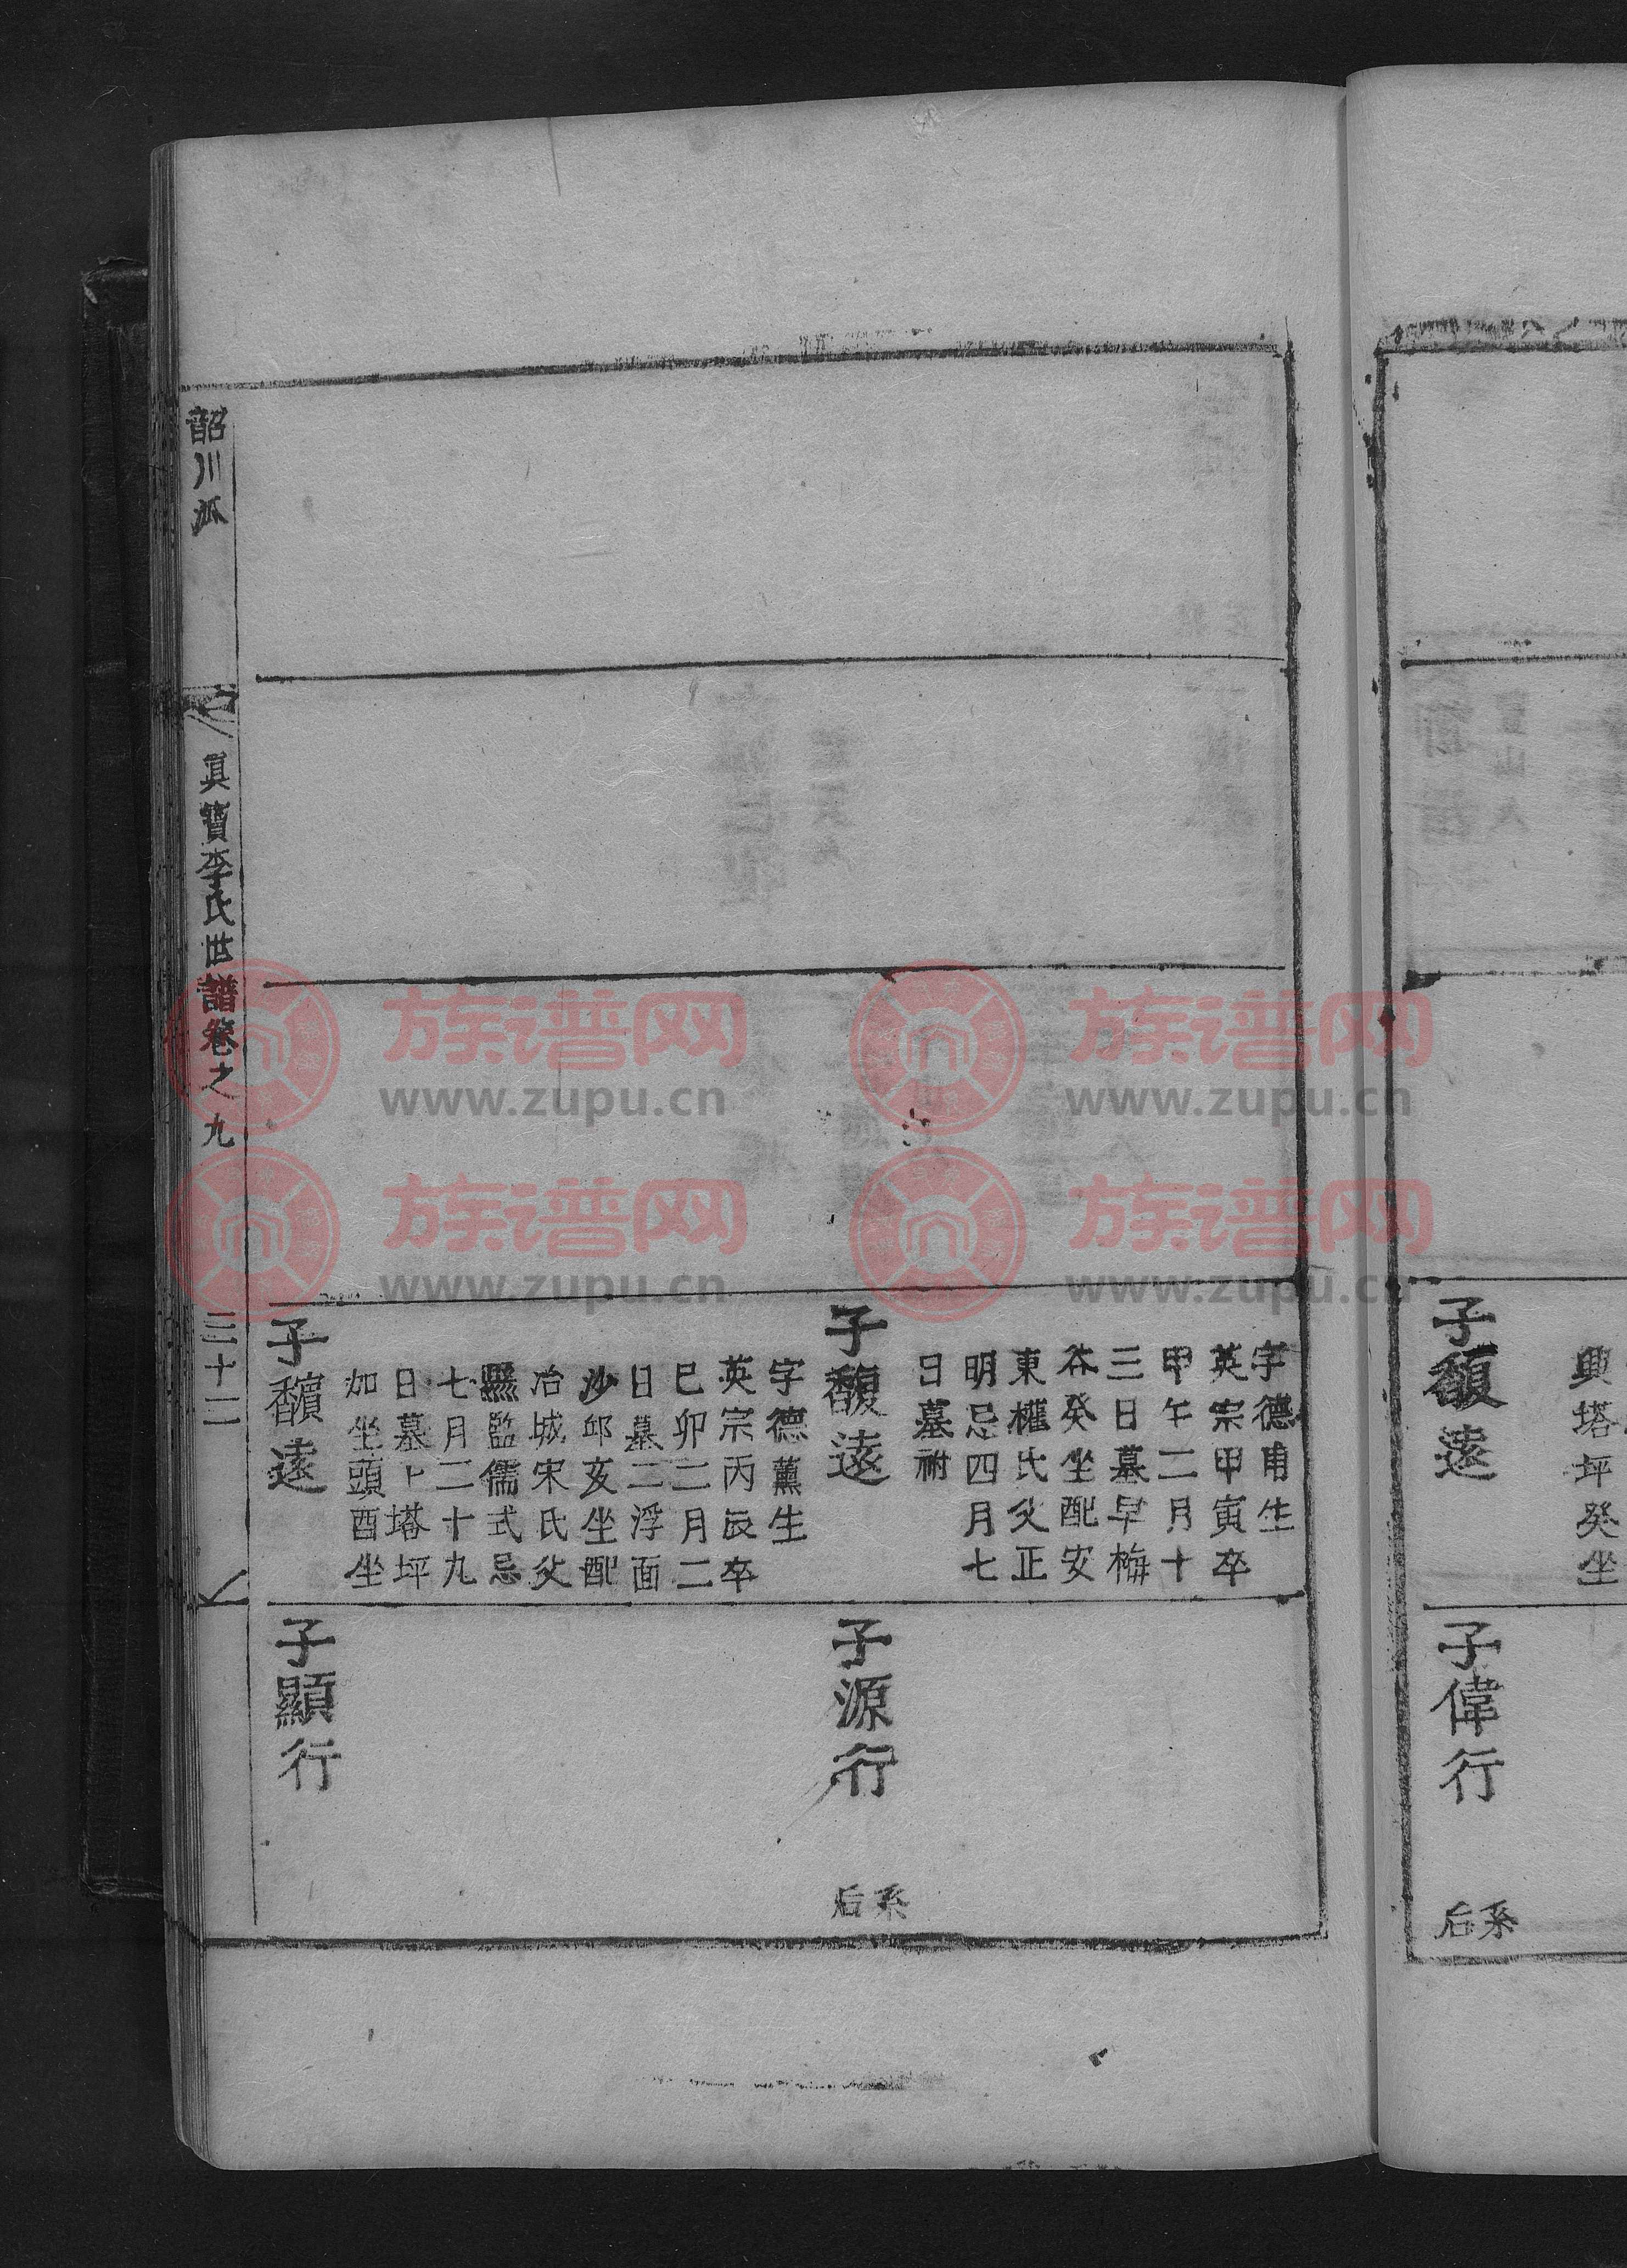 興塔坪癸坐
子馥遠
子偉行
系
后
字德甫生
英宗甲寅卒
甲午二月十
三日墓早梅
谷癸坐配安
東權氏父正
明忌四月七
日墓祔
子馥遠
子源行
系
后
字德薰生
英宗丙辰卒
巳卯二月二
日墓二浮面
沙邱亥坐配
冶城宋氏父
縣監儒式忌
七月二十九
日墓上塔坪
加坐頭酉坐
子馪遠
子顯行
韶川派
眞寶李氏世譜卷之九
三十二
族谱网
www.zupu.cn
族谱网
www.zupu.cn
族谱网
www.zupu.cn
族谱网
www.zupu.cn